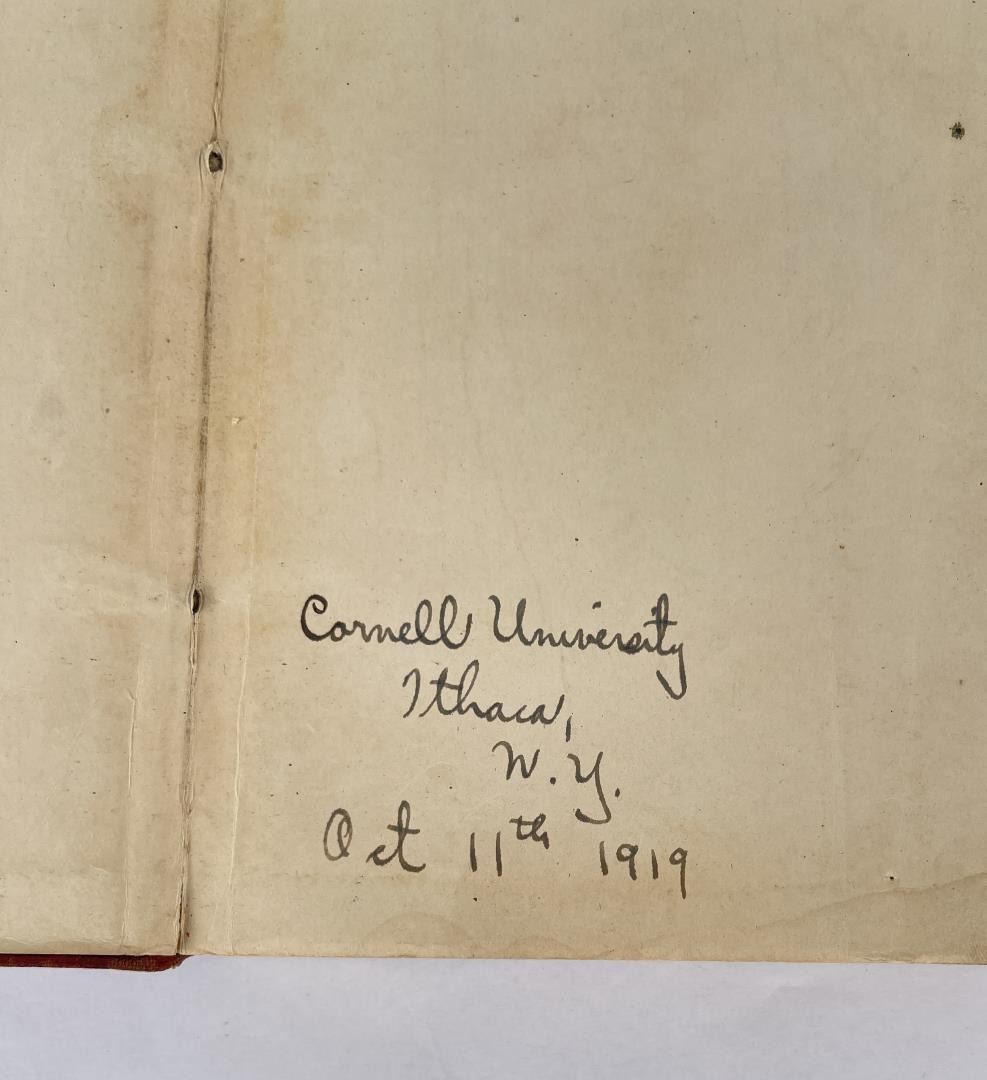 Cornell University
Ithaca,
N.Y.
Oct 11th 1919